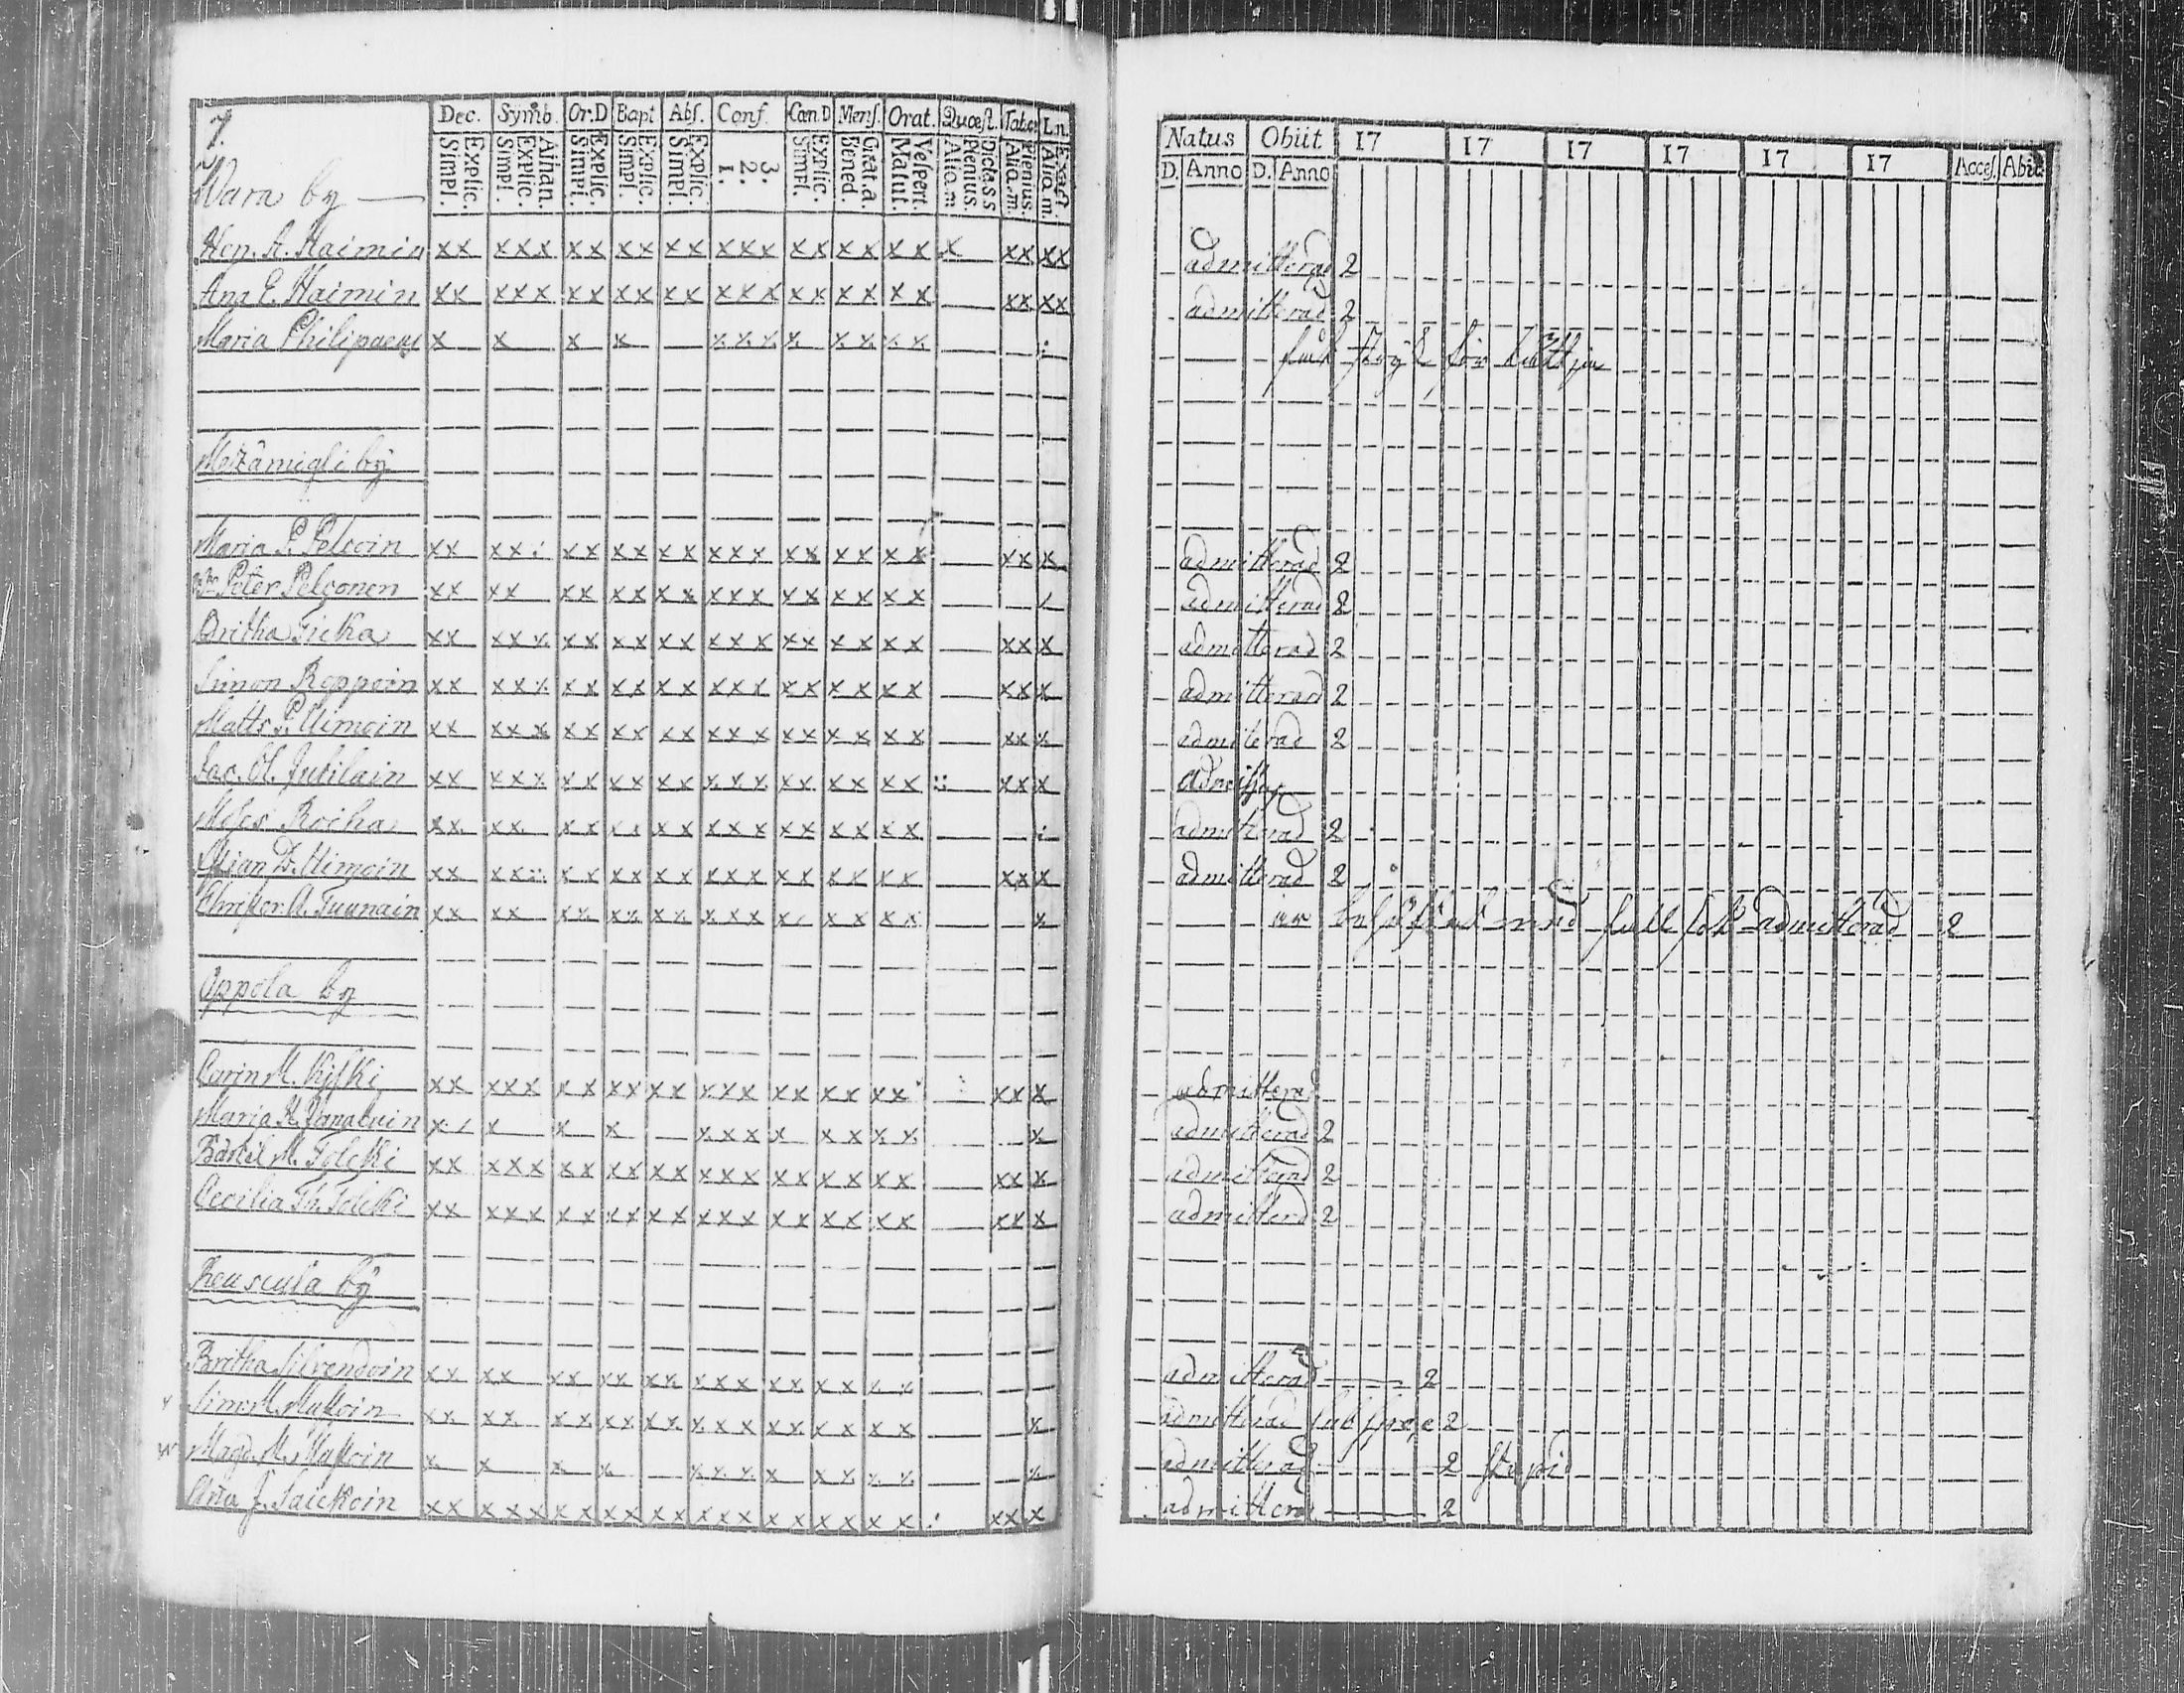 7.
Dec. Symb. Or.D Bapt Abs. Conf. Cœn.D Mens. Orat. Quœst. Tabæ Ln.
Simpl. Explic. Simpl. Explic. Athan. Simpl. Explic. Simpl. Explic. Simpl. Explic. 1. 2. 3. Simpl. Explic. Bened. Grat.a. Matut. Vespert. Aliq.m Plenius. Dicta SS Aliq.m. Plenius. Aliq.m. Exact.
Natus Obiit 17 17 17 17 17 17 Acces. Abit
D. Anno D. Anno
Wara by
Hen. H. Haimin xx xxx xx xx xx xxx xx xx xx x xx xx admitterad 2
Ana E. Haimin xx xxx xx xx xx xxx xx xx xx xx xx admitterad 2
Maria Philipaeus x x x x xxx x xx xx
Metzämigli by
Maria P. Pelcoin xx xx xx xx xx xxx xx xx xx xx x admitterad 2
Peter Pelconen xx xx xx xx xx xxx xx xx xx admitterad 2
Britha Ficka xx xxx xx xx xx xxx xx xx xx xx x admitterad 2
Simon Roppoin xx xxx xx xx xx xxx xx xx xx xx x admitterad 2
Matts P. Uimoin xx xxx xx xx xx xxx xx xx xx xx x admitterad 2
Jac. Ol. Jutilain xx xxx xx xx xx xxx xx xx xx xx x
Rocha xx xx xx xx xx xxx xx xx xx admitterad 2
D. Uimoin xx xx xx xx xx xxx xx xx xx xx x admitterad 2
Christer A. Tuunain xx xx xx xx xx xxx xx xx xx x admitterad 2
Oppola by
Carin M. Kiski xx xxx xx xx xx xxx xx xx xx xx x admitterad
Maria x x x xxx x xx xx x admitterad 2
Bärtil M. Tolcki xx xxx xx xx xx xxx xx xx xx xx x admitterad 2
Cecilia Th. Tolcki xx xxx xx xx xx xxx xx xx xx xx x admitterd 2
Reuscula by
Britha Silvendoin xx xx xx xx xx xxx xx xx xx admitterad 2
Simo M. Mustoin xx xx xx xx xx xxx xx xx xx x admitterad sub spe 2
Magd. M. Mustoin x x x x xxx x xx xx x admitterad 2 stupid
Ana J. Saickoin xx xxx xx xx xx xxx xx xx xx xx x admittera 2